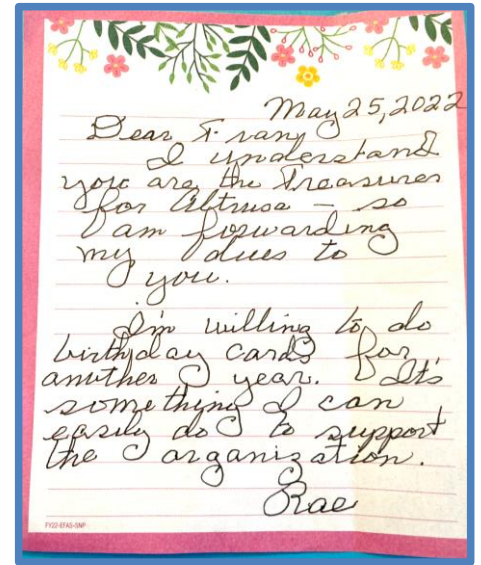 May 25, 2022
Dear Fran,
I understand
you are the Treasurer
for Altrusa – so
I am forwarding
my dues to
you.
I'm willing to do
birthday cards for
another year. It's
something I can
easily do to support
the organization.
Rae
FY22-EFAS-SNP